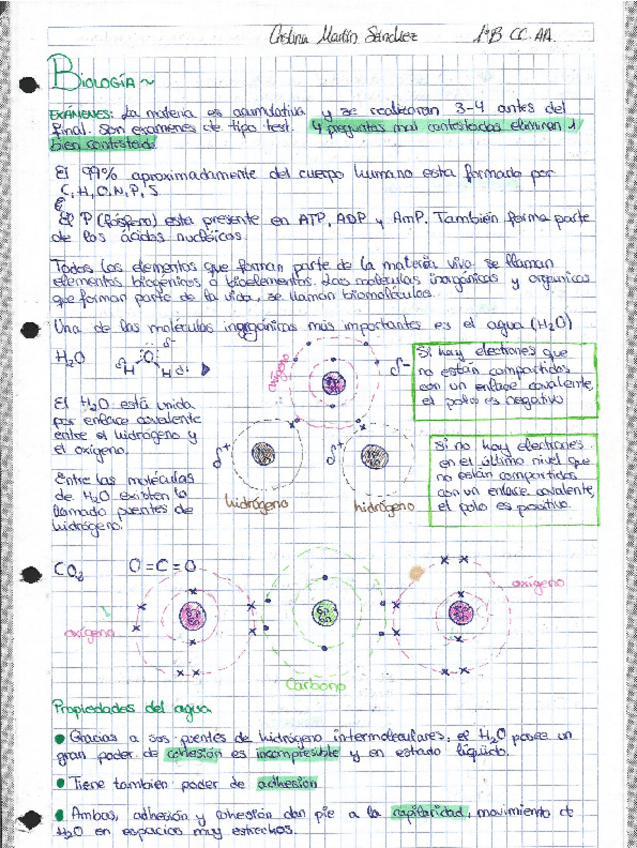 Cristina Martín Sánchez 1ºB CC.AA.
BIOLOGÍA ~
EXÁMENES: La materia es acumulativa y se realizaran 3-4 antes del
final. Son exámenes de tipo test. 4 preguntas mal contestadas eliminan 1
bien contestada
El 99% aproximadamente del cuerpo humano esta formado por
C, H, O, N, P, S
El P (fósforo) esta presente en ATP, ADP y AMP. También forma parte
de los ácidos nucléicos.
Todos los elementos que forman parte de la materia viva se llaman
elementos biogénicos o bioelementos. Las moléculas inorgánicas y orgánicas
que forman parte de la vida, se llaman biomoléculas.
Una de las moléculas inorgánicas más importantes es el agua (H₂O)
H₂O
δ-
O
δ+ H
H δ+
oxígeno
δ-
Si hay electrones que
no están compartidos
con un enlace covalente,
el polo es negativo
El H₂O está unida
por enlace covalente
entre el hidrógeno y
el oxígeno.
δ+
δ+
hidrógeno
hidrógeno
Si no hay electrones
en el último nivel que
no están compartidos
con un enlace covalente,
el polo es positivo.
Entre las moléculas
de H₂O existen lo
llamado puentes de
hidrógeno.
CO₂ O=C=O
oxígeno
Carbono
oxígeno
Propiedades del agua
• Gracias a sus puentes de hidrógeno intermoleculares, el H₂O posee un
gran poder de cohesión es incompresible y en estado líquido.
• Tiene también poder de adhesión
• Ambas, adhesión y cohesión dan pie a la capilaridad, movimiento de
H₂O en espacios muy estrechos.